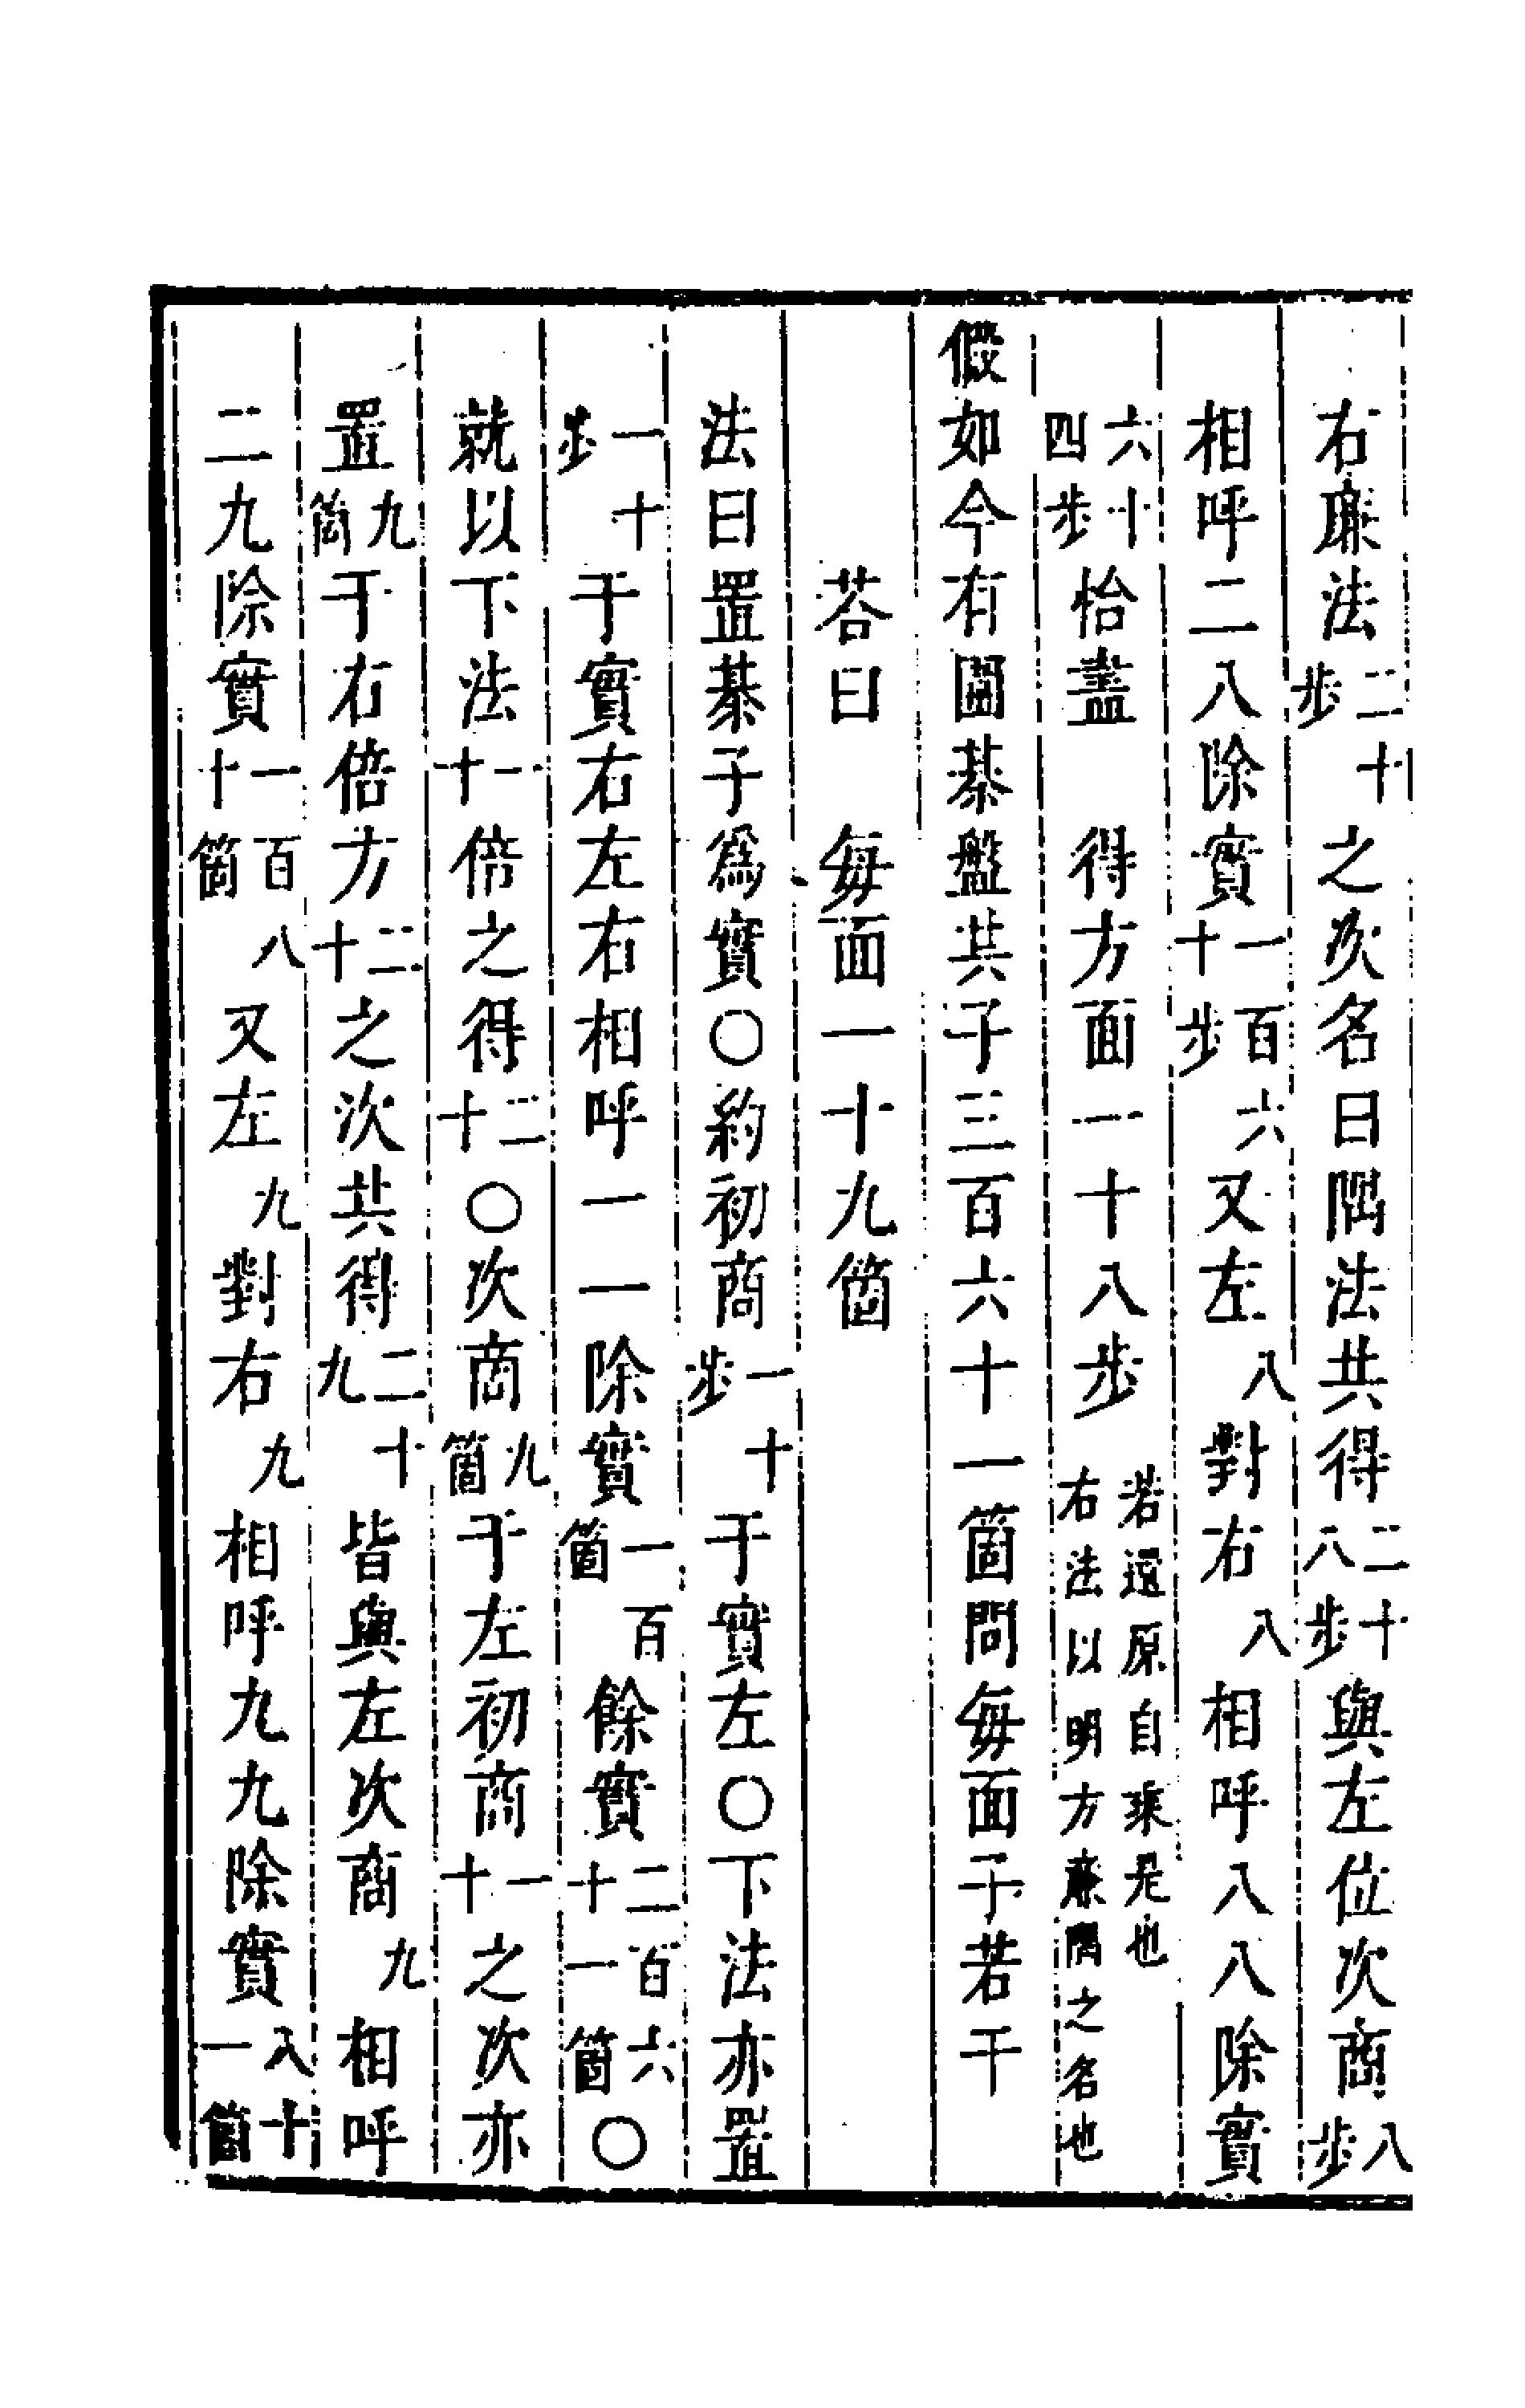 右廉法二十步之次名曰隅法共得二十八步與左位次商八步
相呼二八除實一百六十步又左八對右八相呼八八除實
六十四步恰盡　得方面一十八步若還原自乘是也右法以明方廉隅之名也
假如今有圍棊盤共子三百六十一箇問每面子若干
荅曰　每面一十九箇
法曰置棊子爲實○約初商一十步于實左○下法亦置
一十步于實右左右相呼一一除實一百箇餘實二百六十一箇○
就以下法一十倍之得二十○次商九箇于左初商一十之次亦
置九箇于右倍方二十之次共得二十九皆與左次商九相呼
二九除實一百八十箇又左九對右九相呼九九除實八十一箇